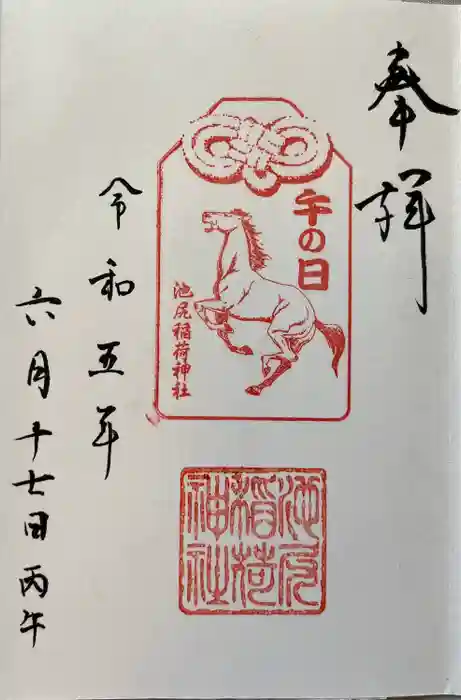 奉拝
午の日
池尻稲荷神社
池尻
稲荷
神社
令和五年
六月十七日丙午